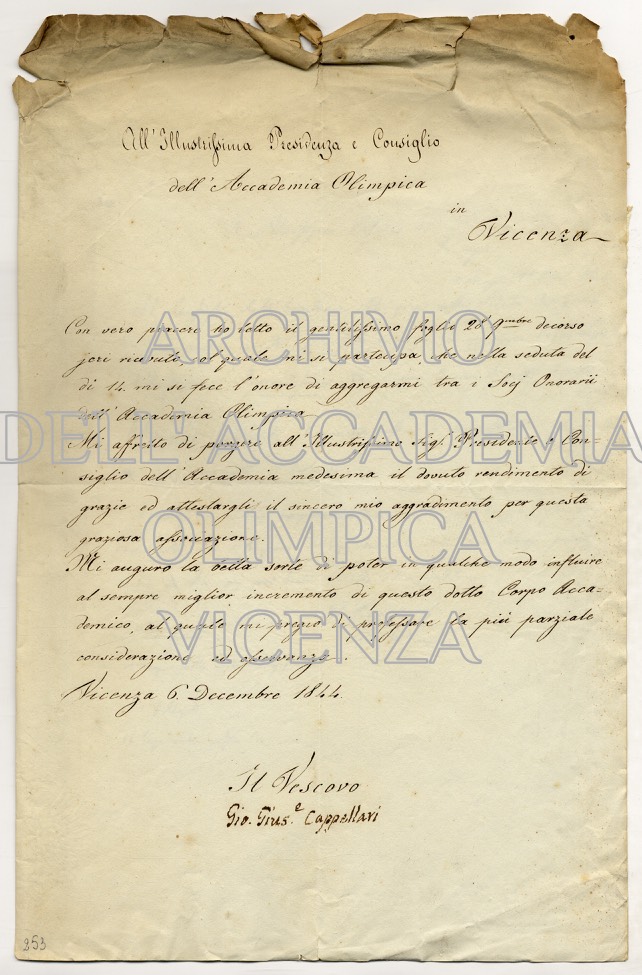 All'Illustrissima Presidenza e Consiglio
dell'Accademia Olimpica
in
Vicenza
Con vero piacere ho letto il gentilissimo foglio 28 9mbre decorso
jeri ricevuto, col quale mi si partecipa, che nella seduta del
dì 14. mi si fece l'onore di aggregarmi tra i Socj Onorarii
dell'Accademia Olimpica.
Mi affretto di porgere all'Illustrissimo Sigr. Presidente e Con-
siglio dell'Accademia medesima il dovuto rendimento di
grazie ed attestargli il sincero mio aggradimento per questa
graziosa associazione.
Mi auguro la bella sorte di poter in qualche modo influire
al sempre miglior incremento di questo dotto Corpo Acca-
demico, al quale mi pregio di professare la più parziale
considerazione ed osservanza.
Vicenza 6. Decembre 1844.
Il Vescovo
Gio. Gius.e Cappellari
253
ARCHIVIO
DELL'ACCADEMIA
OLIMPICA
VICENZA